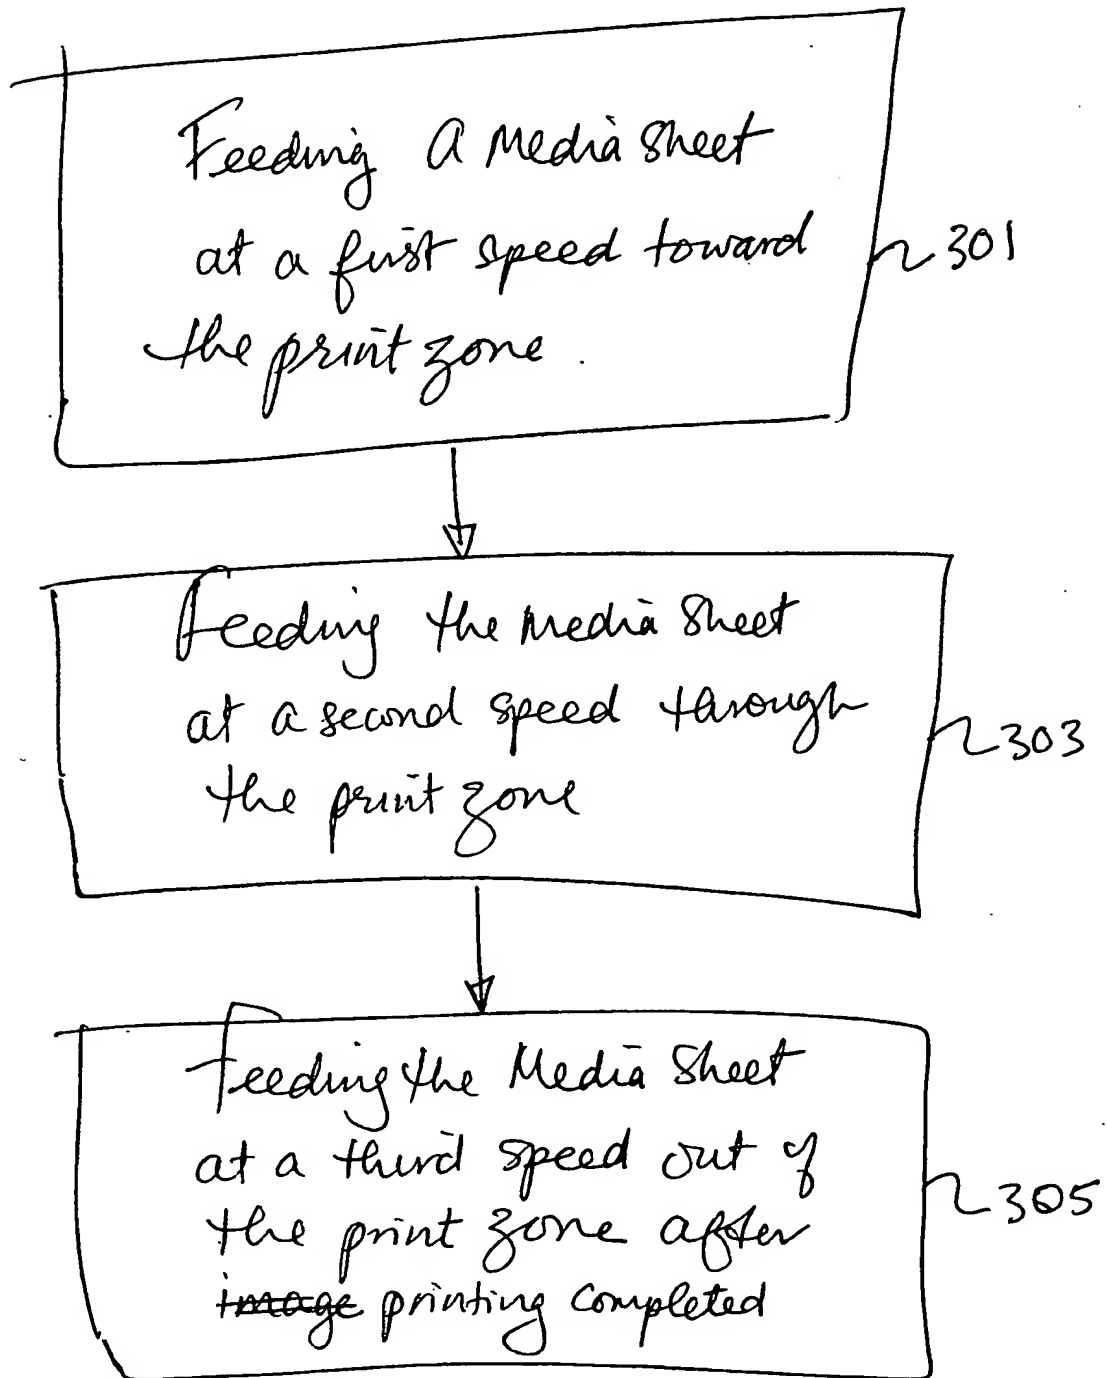 Feeding a Media sheet
at a first speed toward
the print zone.
301
Feeding the Media Sheet
at a second speed through
the print zone
303
Feeding the Media Sheet
at a third speed out of
the print zone after
image printing completed
305